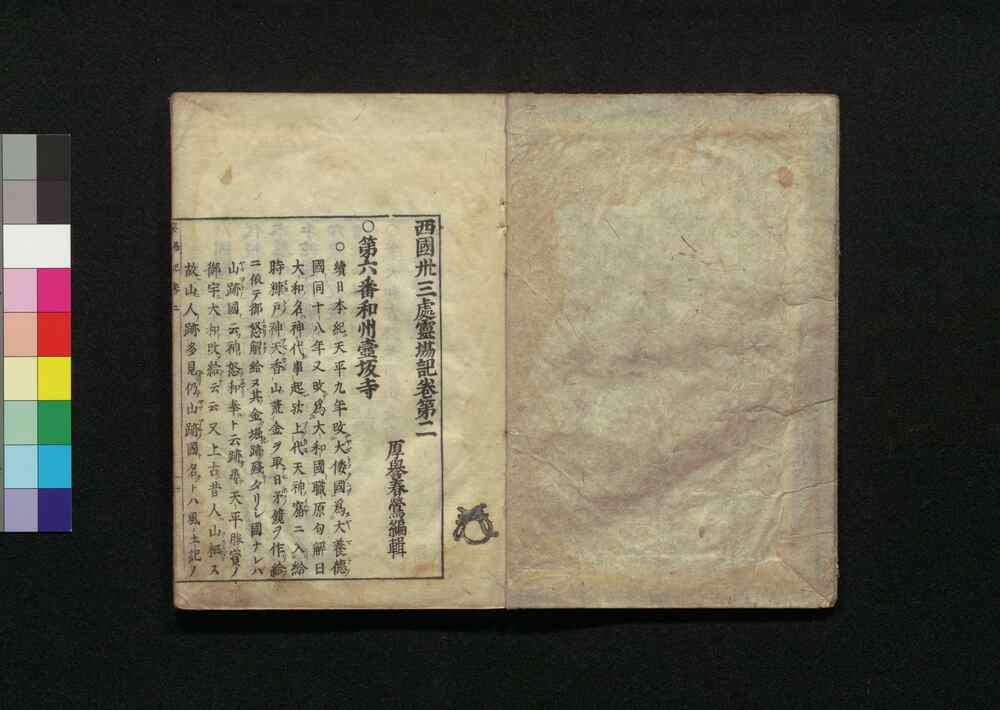 西國卅三處靈場記卷第二
厚譽春鶯編輯
○第六番和州壺坂寺
○續日本紀天平九年改大倭國爲大養德
國同十八年又改爲大和國職原句解曰
大和名神代事起北上代天神窟ニ入給
時神天香山金ヲ取日矛鏡ヲ作給
ニ依テ御怒解給ス其金堀跡殘タリシ國ナレハ
山跡國云神怒和奉ト云跡天平勝寶ノ
御宇大和改給云云又上古昔人山ス
故山人跡多見仍山跡國名トハ風土記ノ